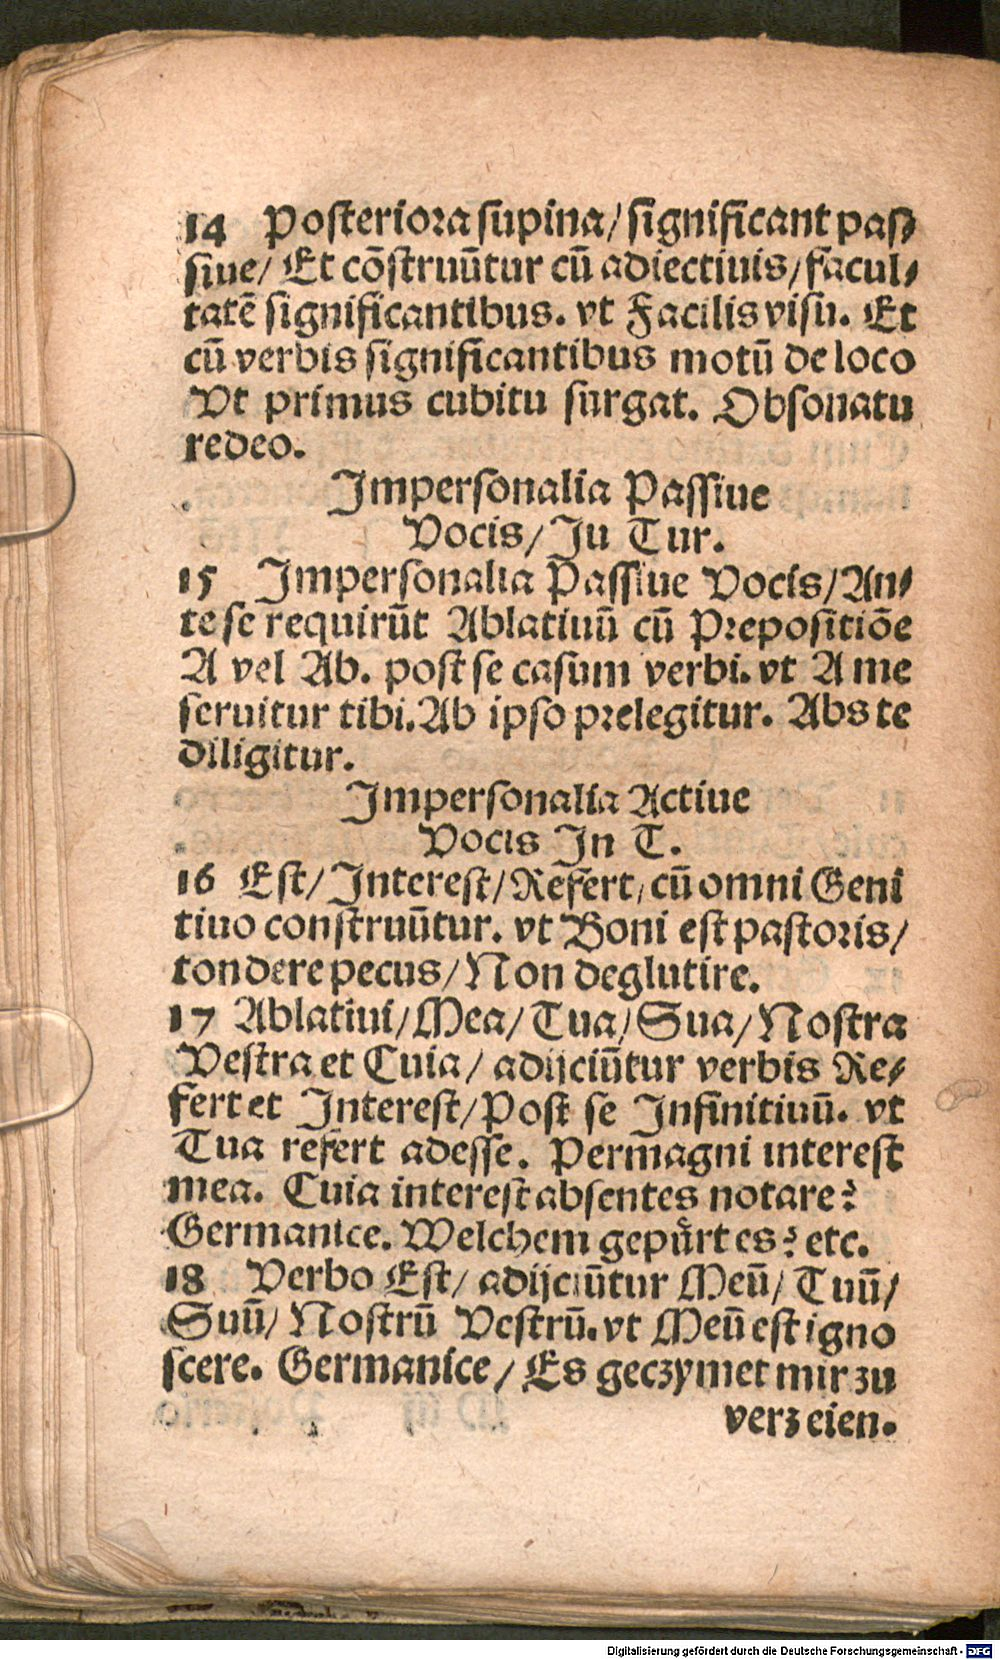 14 Posteriora supina/ significant pas⸗
siue/ Et cõstruũtur cũ adiectiuis/ facul⸗
tatẽ significantibus. vt Facilis visu. Et
cũ verbis significantibus motũ de loco
Vt primus cubitu surgat. Obsonatu
redeo.
Impersonalia Passiue
Vocis/ In Tur.
15 Impersonalia Passiue Vocis/ An⸗
te se requirũt Ablatiuũ cũ Prepositiõe
A vel Ab. post se casum verbi. vt A me
seruitur tibi. Ab ipso prelegitur. Abs te
diligitur.
Impersonalia Actiue
Vocis In T.
16 Est/ Interest/ Refert/ cũ omni Geni
tiuo construũtur. vt Boni est pastoris/
tondere pecus/ Non deglutire.
17 Ablatiui/ Mea/ Tua/ Sua/ Nostra
Vestra et Cuia/ adijciũtur verbis Re⸗
fert et Interest/ Post se Infinitiuũ. vt
Tua refert adesse. Permagni interest
mea. Cuia interest absentes notare?
Germanice. Welchem gepuͤrt es? etc.
18 Verbo Est/ adijciũtur Meũ/ Tuũ/
Suũ/ Nostrũ Vestrũ. vt Meũ est igno
scere. Germanice/ Es geczymet mir zu
verzeien.
Digitalisierung gefördert durch die Deutsche Forschungsgemeinschaft - DFG